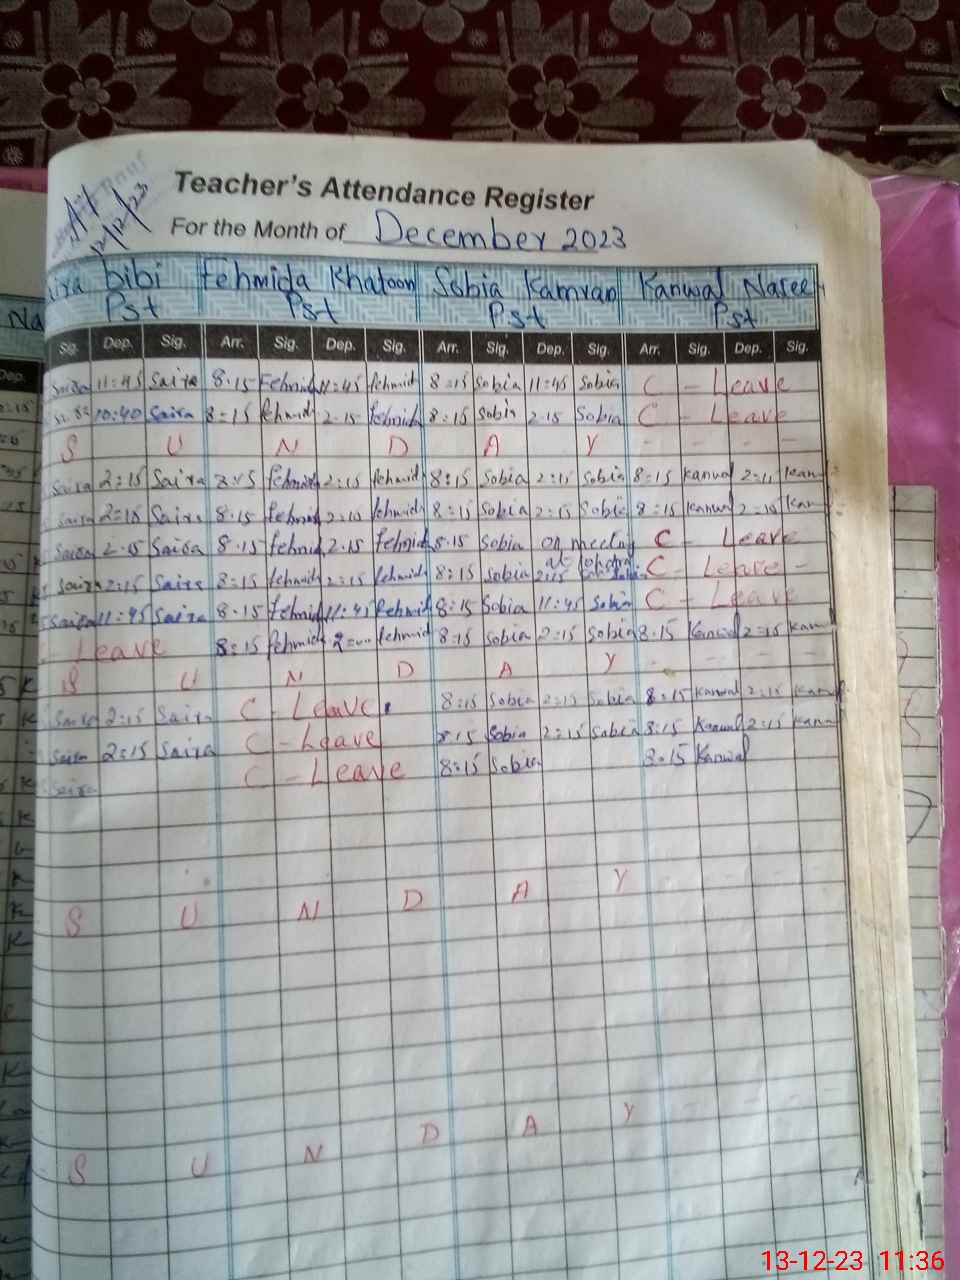 12/12/23
Teacher's Attendance Register
For the Month of December 2023
Bibi Fehmida Khatoon Sobia Kamran Kanwal Naseer
Pst Pst Pst Pst
Sig. Dep. Sig. Arr. Sig. Dep. Sig. Arr. Sig. Dep. Sig. Arr. Sig. Dep. Sig.
Saira 11:45 Saira 8:15 Fehmid 11:45 fehmid 8:15 Sobia 11:45 Sobia C - Leave
10:40 Saira 8:15 fehmid 2:15 fehmida 8:15 Sobia 2:15 Sobia C - Leave
S U N D A Y - - - -
Saira 2:15 Saira 8:15 fehmid 2:15 fehmid 8:15 Sobia 2:15 Sobia 8:15 Kanwal 2:15 Kan
Saira 2:15 Saira 8:15 fehmid 2:15 fehmid 8:15 Sobia 2:15 Sobia 8:15 Kanwal 2:15 Kan
Saira 2:15 Saira 8:15 fehmid 2:15 fehmid 8:15 Sobia on meeting C Leave
Saira 2:15 Saira 8:15 fehmid 2:15 fehmid 8:15 Sobia 2:15 C - Leave -
Saira 11:45 Saira 8:15 fehmid 11:45 fehmid 8:15 Sobia 11:45 Sobia C - Leave
Leave 8:15 fehmid 2:00 fehmid 8:15 Sobia 2:15 Sobia 8:15 Kanwal 2:15 Kan
S U N D A Y - - - -
Saira 2:15 Saira C - Leave 8:15 Sobia 2:15 Sobia 8:15 Kanwal 2:15 Kan
Saira 2:15 Saira C - Leave 8:15 Sobia 2:15 Sobia 8:15 Kanwal 2:15 Kan
Saira C - Leave 8:15 Sobia 8:15 Kanwal
S U N D A Y
S U N D A Y
13-12-23 11:36